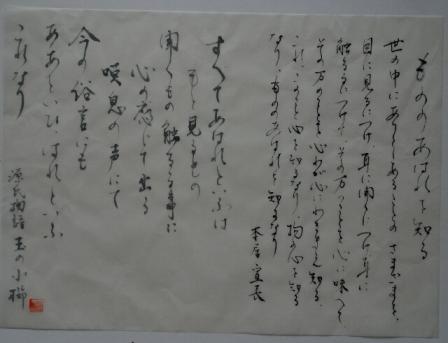 もののあはれを知る
世の中にあらとしあることのさまざまを
目に見るにつけ、耳に聞くにつけ、身に
触るるにつけて、その万のことを心に味へて
その万のことの心をわが心にわきまへ知る、
これ、ことの心を知るなり、物の心を知る
なり、もののあはれを知るなり
本居宣長
すべてあはれといふは
もと見るもの
聞くもの触るる事に
心の感じて出る
嘆息の声にて
今の俗言にも
ああといひ、はれといふ
これなり
源氏物語 玉の小櫛